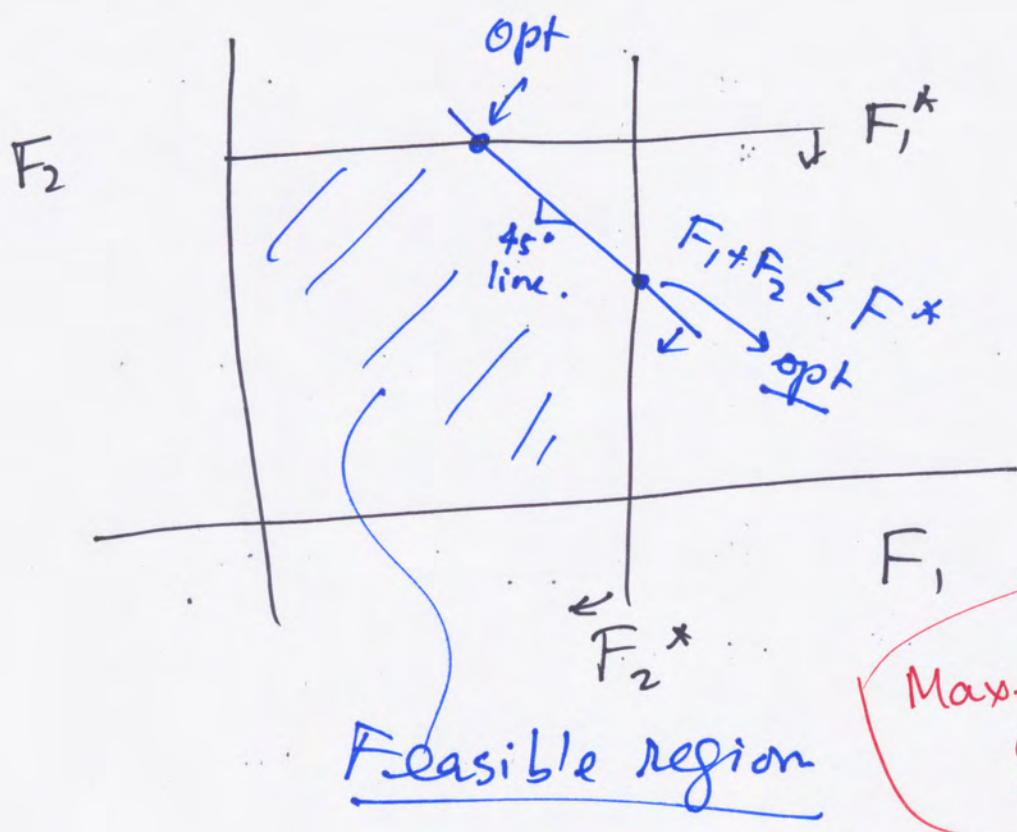 opt
F₂
F₁*
45°
line.
F₁ + F₂ ≤ F*
opt
F₁
F₂*
Max.
Feasible region